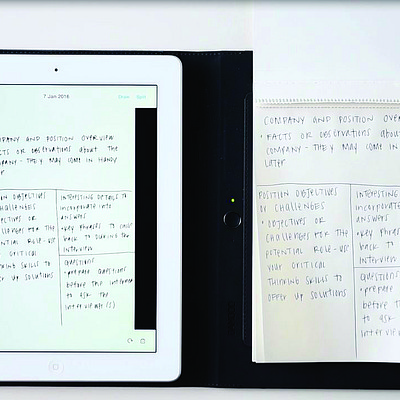 7 Jan 2016
MPANY AND POSITION OVERVIEW
CTS OR OBSERVATIONS ABOUT THE
MPANY - THEY MAY COME IN HANDY
ON OBJECTIVES
CHALLENGES
JECTIVES OR
ALLENGES FOR THE
TENTIAL ROLE-USE
CRITICAL
INKING SKILLS TO
ER UP SOLUTIONS
INTERESTING DETAILS TO
INCORPORATE INTO
ANSWERS
•KEY PHRASES TO
BACK TO DURING THE
INTERVIEW
QUESTIONS
•PREPARE QUESTIONS
BEFORE THE INTERVIEW
TO ASK THE
INTERVIEWER(S)
COMPANY AND POSITION OVER
•FACTS OR OBSERVATIONS ABOUT
COMPANY - THEY MAY COME IN
LATER
POSITION OBJECTIVES
OR CHALLENGES
•OBJECTIVES OR
CHALLENGES FOR THE
POTENTIAL ROLE-USE
YOUR CRITICAL
THINKING SKILLS TO
OFFER UP SOLUTIONS
INTERESTING
INCORPORATE
ANSWERS
•KEY PHRAS
BACK TO
INTERVIEW
QUESTIONS
•PREPARE
BEFORE TH
TO ASK
INTERVIEW